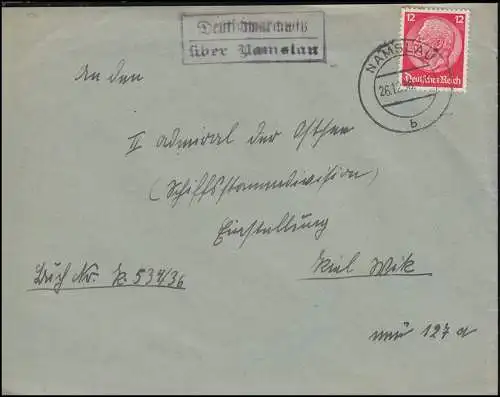 Deutschmarchwitz
über Namslau
12 12
Deutsches Reich
NAMSLAU
26.12.
b
An den
II Admiral der Ostsee
(Schiffsstammdivision)
Einstellung
Kiel Wik
Buch Nr. K 534/36
127 a